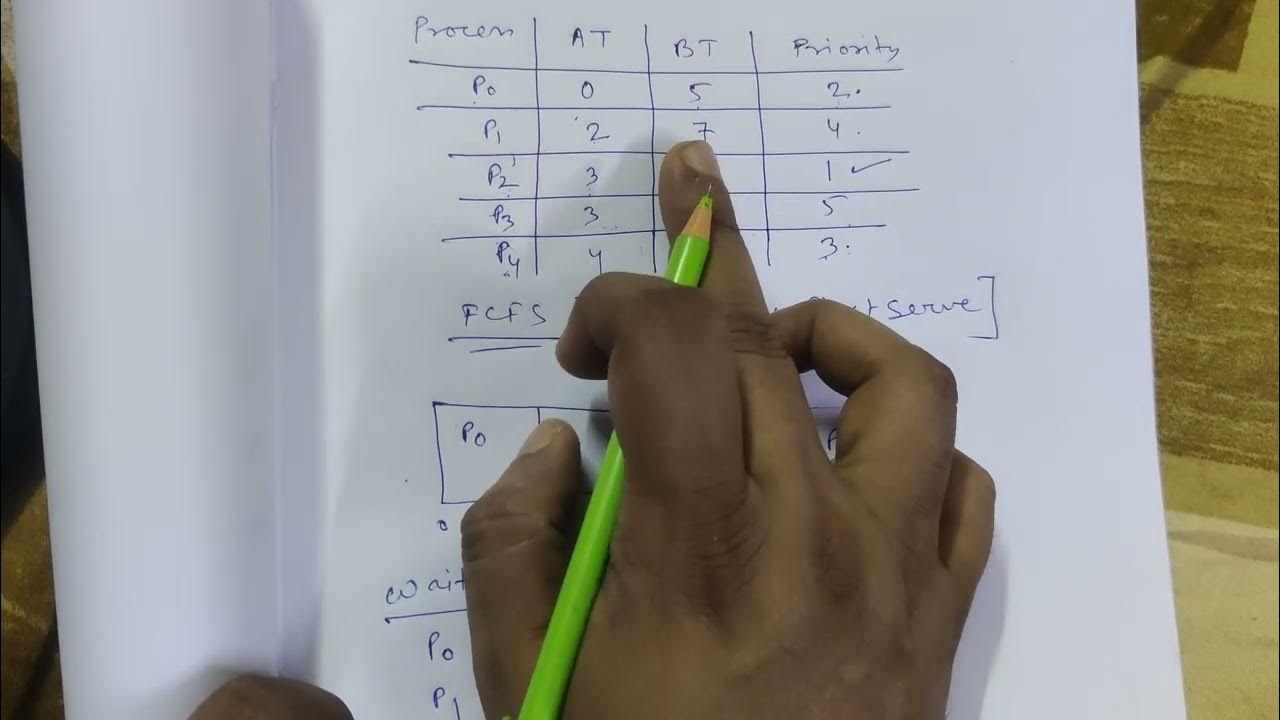 Process AT BT Priority
P0 0 5 2.
P1 2 7 4.
P2 3 1 ✓
P3 3 5
P4 4 3.
FCFS Serve]
P0
0
Wait
P0
P1